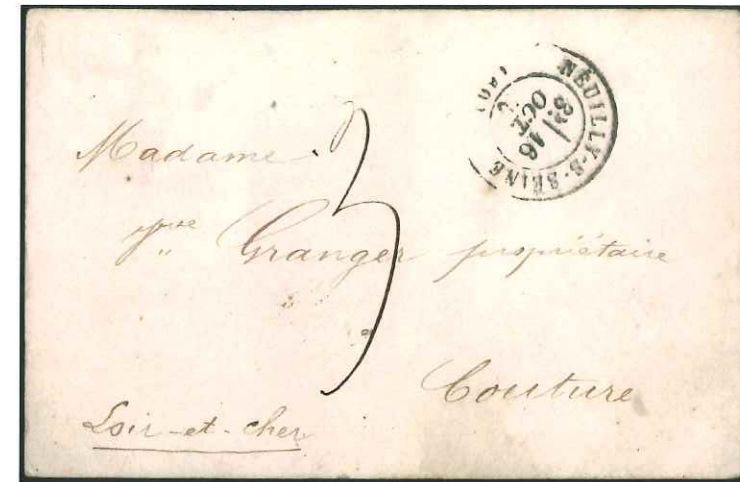 NEUILLY-S-SEINE
16
OCT.
Madame
3
Vve Granger propriétaire
Couture
Loir-et-cher